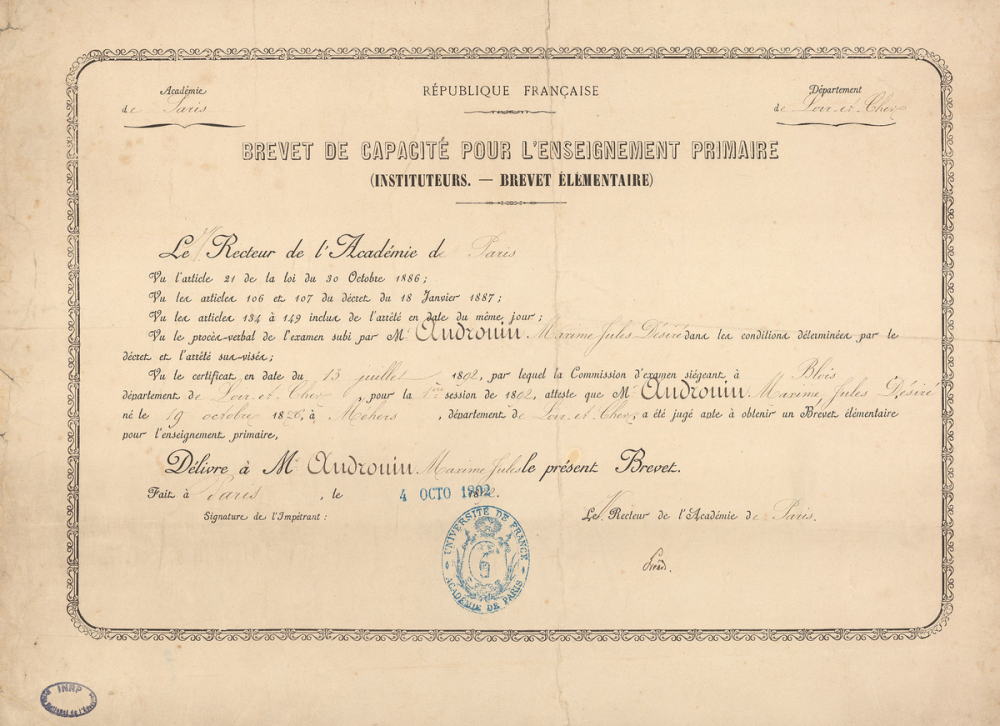 Académie
de Paris
RÉPUBLIQUE FRANÇAISE
Département
de Loir-et-Cher
BREVET DE CAPACITÉ POUR L'ENSEIGNEMENT PRIMAIRE
(INSTITUTEURS. — BREVET ÉLÉMENTAIRE)
Le Recteur de l'Académie de Paris
Vu l'article 21 de la loi du 30 Octobre 1886;
Vu les articles 106 et 107 du décret du 18 Janvier 1887;
Vu les articles 134 à 149 inclus de l'arrêté en date du même jour;
Vu le procès-verbal de l'examen subi par Mr Audrouin Maxime Jules Désiré dans les conditions déterminées par le
décret et l'arrêté sus-visés;
Vu le certificat, en date du 13 juillet 1892, par lequel la Commission d'examen siégeant à Blois
département de Loir-et-Cher, pour la 1ère session de 1892, atteste que Mr Audrouin Maxime, Jules Désiré
né le 19 octobre 18, à Méhers, département de Loir-et-Cher, a été jugé apte à obtenir un Brevet élémentaire
pour l'enseignement primaire,
Délivre à Mr Audrouin Maxime Jules le présent Brevet.
Fait à Paris, le 4 OCTO 1892.
Signature de l'Impétrant:
Le Recteur de l'Académie de Paris.
UNIVERSITÉ DE FRANCE
ACADÉMIE DE PARIS
INRP